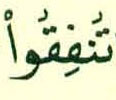 تُنفِقُوا۟